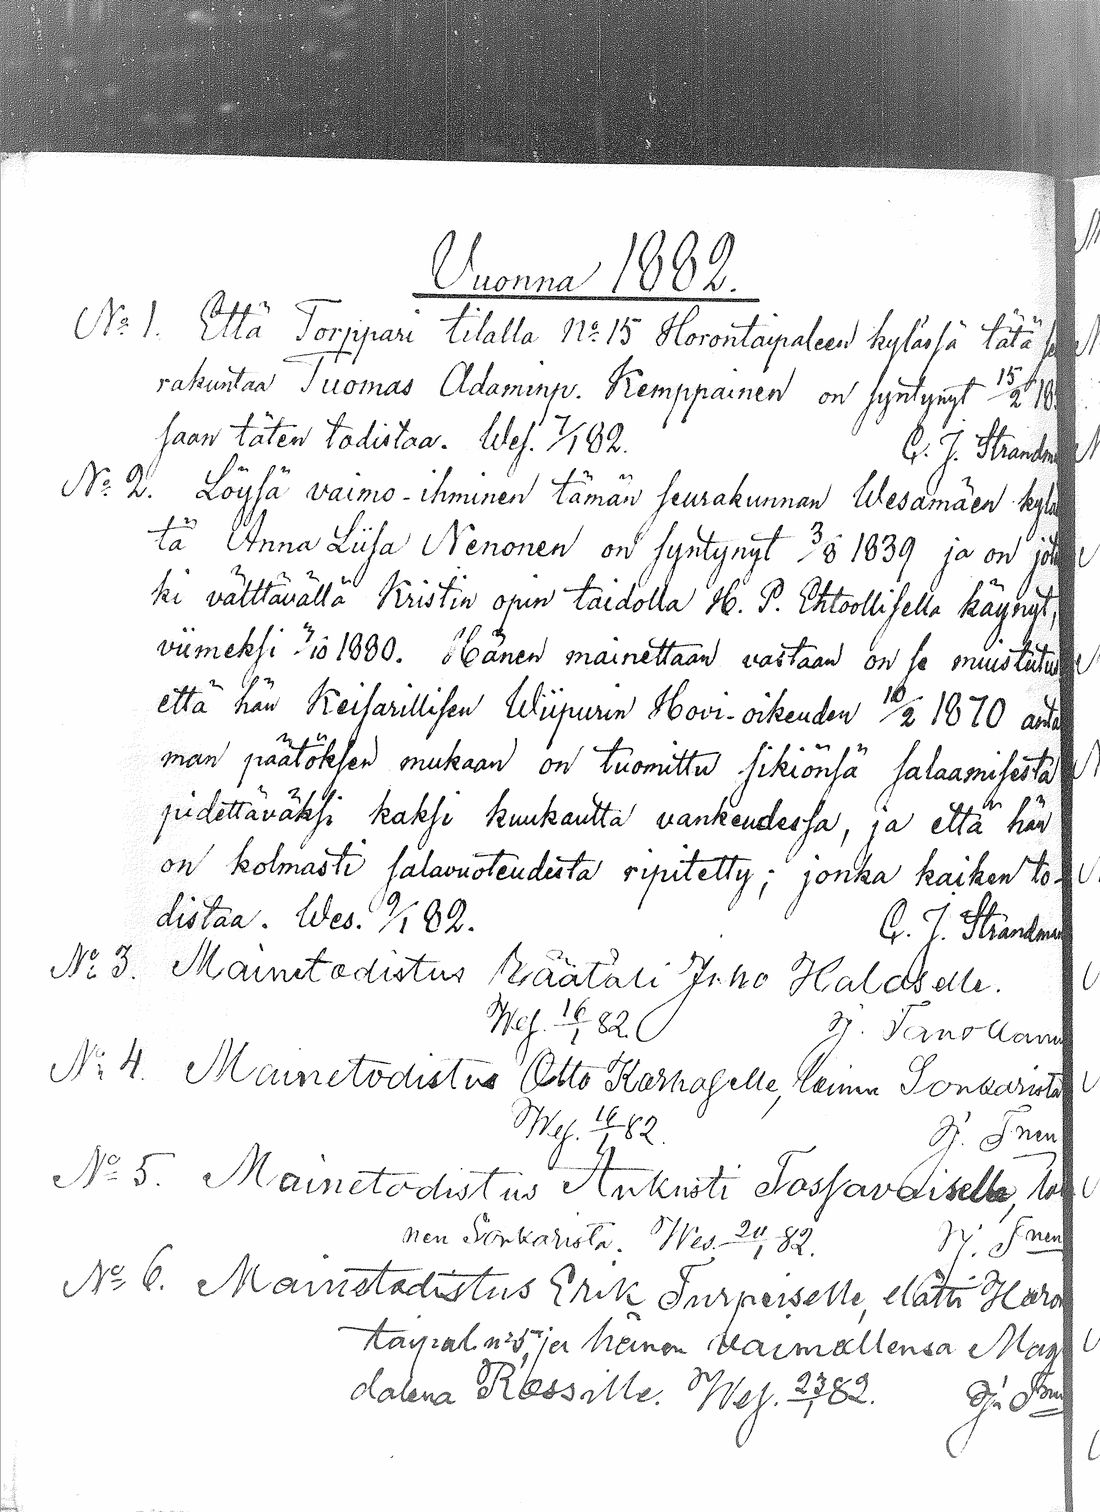 Vuonna 1882.
No 1. Että Torppari tilalla No 15 Horontaipaleen kylässä tätä seu
rakuntaa Tuomas Adaminp. Kemppainen on syntynyt 15/2 18
saan täten todistaa. Wes. 7/1 82. C. J. Strandma
No 2. Löysä vaimo-ihminen tämän seurakunnan Wesamäen kyläs
tä Anna Liisa Nenonen on syntynyt 3/8 1839 ja on jota
ki välttävällä Kristin opin taidolla H. P. Ehtoollisella käynyt,
viimeksi 1880. Hänen mainettaan vastaan on se muistutus
että hän Keisarillisen Wiipurin Hovi-oikeuden 10/2 1870 anta
man päätöksen mukaan on tuomittu sikiönsä salaamisesta
pidettäväksi kaksi kuukautta vankeudessa, ja että hän
on kolmasti salavuoteudesta ripitetty; jonka kaiken to-
distaa. Wes. 9/1 82. C. J. Strandman
No 3. Mainetodistus Räätäli Juho Haloselle.
Wes. 16/1 82.
No 4. Mainetodistus Otto Karhaselle, Sonkarista
Wes. 16/1 82. Tnen
No 5. Mainetodistus Aukusti Tossavaiselle, lo
nen Sonkarista. Wes. 20/1 82. Tnen
No 6. Mainetodistus Erik Turpeiselle, elätti Horon
taipal. no 5, ja hänen vaimollensa Mag
dalena Rossille. Wes. 23/1 82.